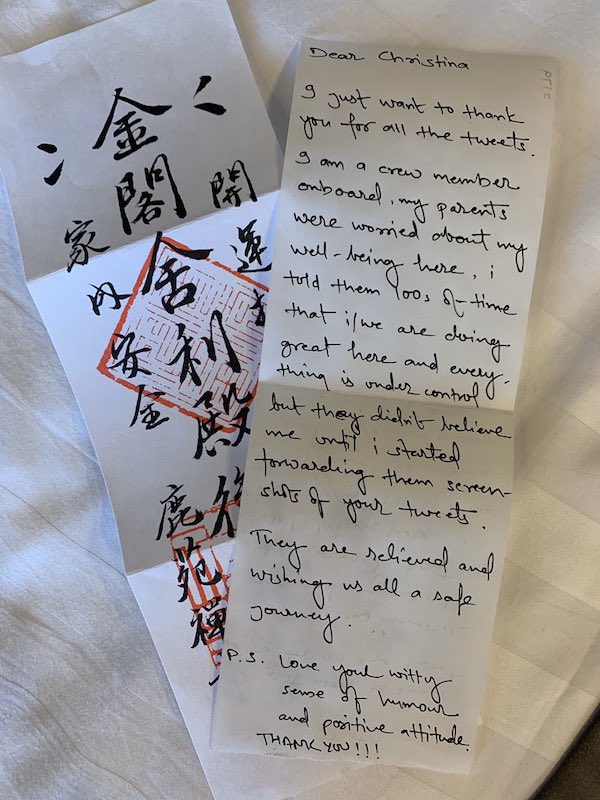 開運
金閣舎利殿
家内安全
鹿苑禅
Dear Christina
I just want to thank
you for all the tweets.
I am a crew member
onboard, my parents
were worried about my
well-being here, i
told them 100s of-time
that i/we are doing
great here and every-
thing is under control
but they didn't believe
me until i started
forwarding them screen-
shots of your tweets.
They are relieved and
wishing us all a safe
journey.
P.S. Love your witty
sense of humour
and positive attitude.
THANK YOU!!!